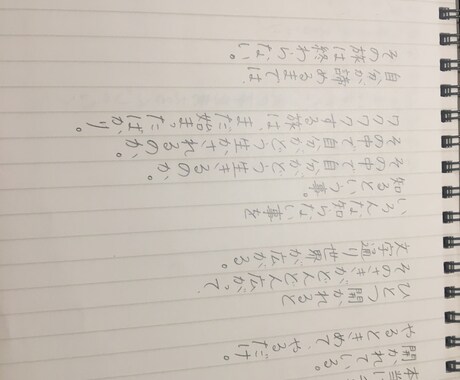 本当に
開かれている。
やるときめてやるだけ。
ひとつ開かれると
そのさきがどんどん広がって
文字通り世界が広がる。
いろんな知らない事を
知るという事。
その中で自分がどう生きるのか。
その中で自分がどう生かされるのか。
ワクワクする旅は、まだ始まったばかり。
自分が諦めるまでは、
その旅は終わらない。